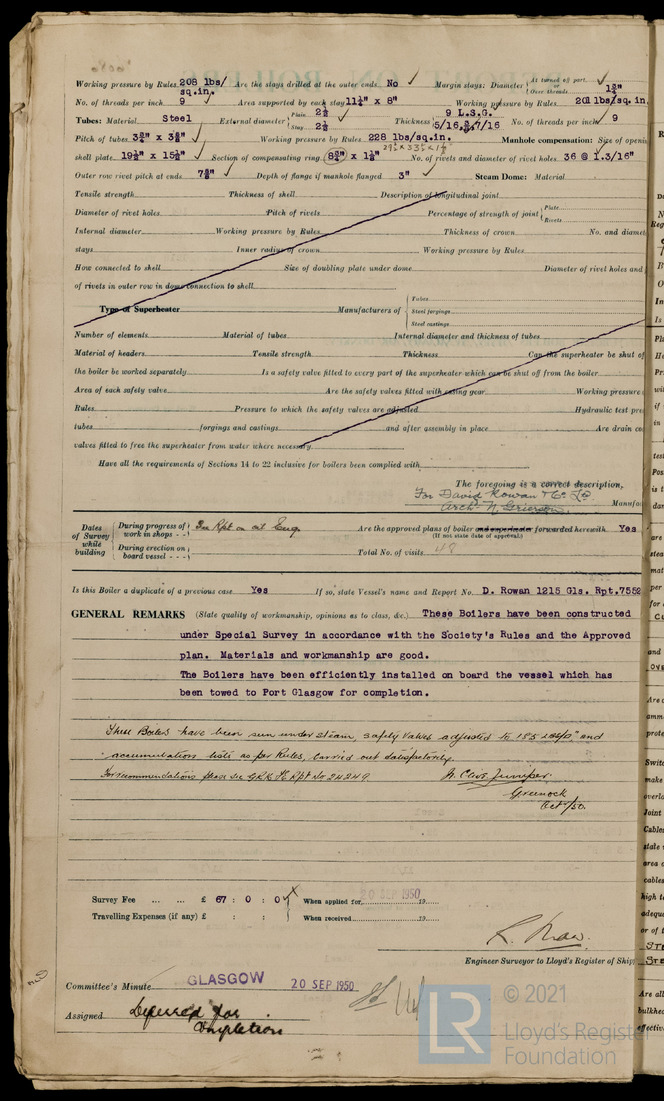 Working pressure by Rules 208 lbs/sq.in. Are the stays drilled at the outer ends No Margin stays: Diameter { At turned off part, or Over threads 1⅝"
No. of threads per inch 9 Area supported by each stay 11¼" x 8" Working pressure by Rules 201 lbs/sq.in.
Tubes: Material Steel External diameter { Plain 2½ Stay 2½ Thickness { 9 L.S.G. 5/16, 7/16 No. of threads per inch 9
Pitch of tubes 3¾" x 3¾" Working pressure by Rules 228 lbs/sq.in. Manhole compensation: Size of openi
shell plate 19½" x 15½" Section of compensating ring 8¾" x 1½" No. of rivets and diameter of rivet holes 36 @ 1.3/16"
Outer row rivet pitch at ends 7⅞" Depth of flange if manhole flanged 3" Steam Dome: Material
Tensile strength Thickness of shell Description of longitudinal joint
Diameter of rivet holes Pitch of rivets Percentage of strength of joint { Plate Rivets
Internal diameter Working pressure by Rules Thickness of crown No. and diamet
stays Inner radius of crown Working pressure by Rules
How connected to shell Size of doubling plate under dome Diameter of rivet holes and
of rivets in outer row in dome connection to shell
Type of Superheater Manufacturers of { Tubes Steel forgings Steel castings
Number of elements Material of tubes Internal diameter and thickness of tubes
Material of headers Tensile strength Thickness Can the superheater be shut of
the boiler be worked separately Is a safety valve fitted to every part of the superheater which can be shut off from the boiler
Area of each safety valve Are the safety valves fitted with easing gear Working pressure
Rules Pressure to which the safety valves are adjusted Hydraulic test pre
tubes forgings and castings and after assembly in place Are drain co
valves fitted to free the superheater from water where necessary
Have all the requirements of Sections 14 to 22 inclusive for boilers been complied with
The foregoing is a correct description,
For David Rowan & Co. Ld
Arch. N. Grierson Manufac
Dates of Survey while building { During progress of work in shops - - See Rpt on oil Eng. Are the approved plans of boiler and superheater forwarded herewith Yes
(If not state date of approval)
During erection on board vessel - - - Total No. of visits 48
Is this Boiler a duplicate of a previous case Yes If so, state Vessel's name and Report No. D. Rowan 1215 Gls. Rpt.7552
GENERAL REMARKS (State quality of workmanship, opinions as to class, &c.) These Boilers have been constructed
under Special Survey in accordance with the Society's Rules and the Approved
plan. Materials and workmanship are good.
The Boilers have been efficiently installed on board the vessel which has
been towed to Port Glasgow for completion.
These Boilers have been seen under steam, safety valves adjusted to 185 lbs/□" and
accumulation tests as per Rules, carried out satisfactorily.
For recommendations please see GRK Rpt No 24249.
Greenock
Oct/50.
Survey Fee ... ... £ 67 : 0 : 0 When applied for 20 SEP 1950 19
Travelling Expenses (if any) £ : : When received 19
Engineer Surveyor to Lloyd's Register of Ship
Committee's Minute GLASGOW 20 SEP 1950
Assigned Deferred for
Completion
LR © 2021
Lloyd's Register
Foundation